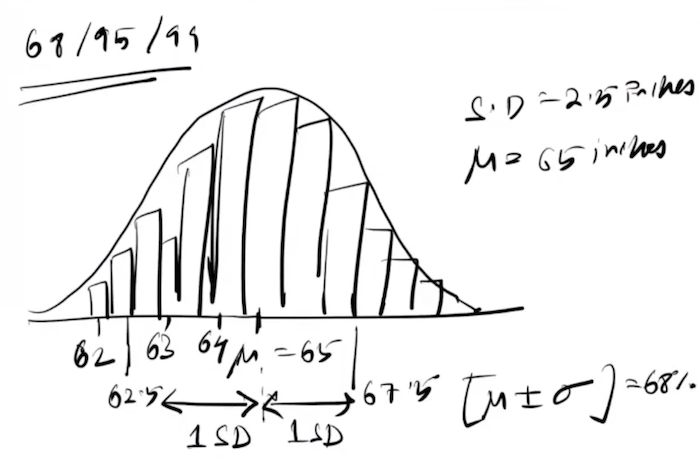 68/95/99
S.D = 2.5 inches
μ = 65 inches
62 63 64 μ = 65
62.5 67.5 [μ ± σ] = 68%
1 SD 1 SD